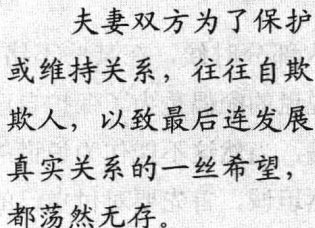 夫妻双方为了保护
或维持关系，往往自欺
欺人，以致最后连发展
真实关系的一丝希望，
都荡然无存。